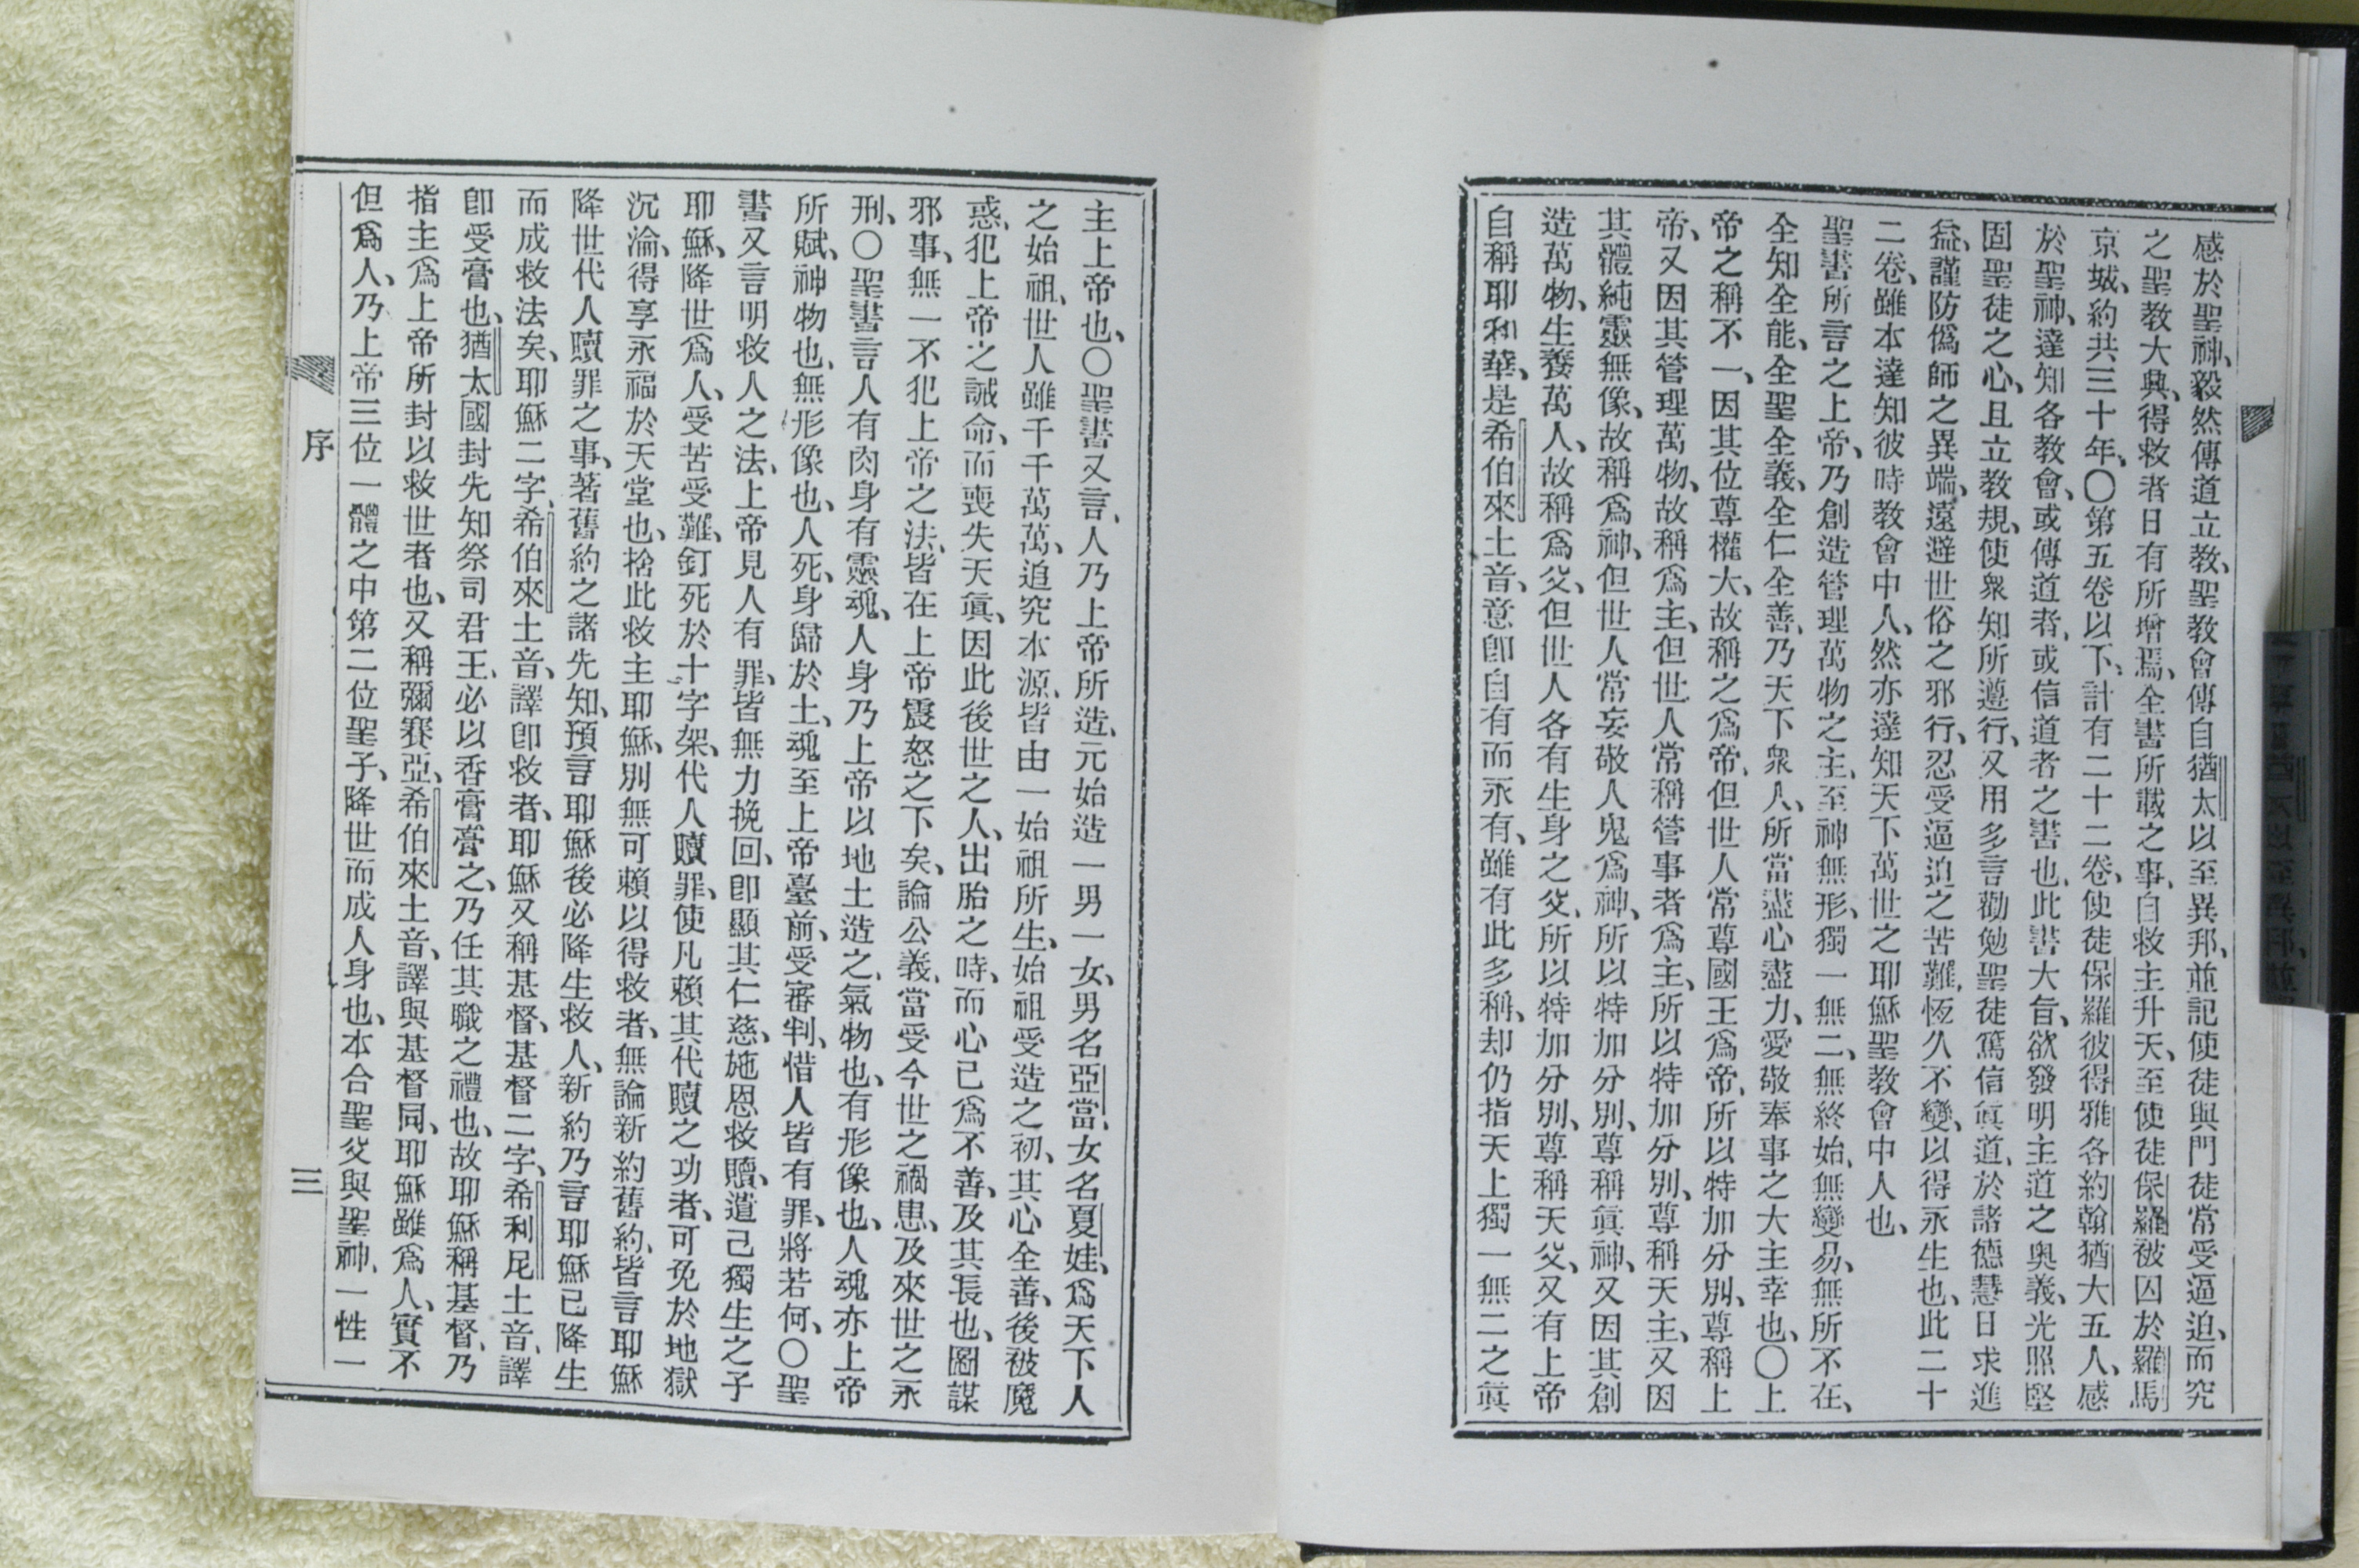 感於聖神、毅然傳道立教、聖教會傳自猶太以至異邦、並記使徒與門徒當受逼迫、而究
之聖教大興、得救者日有所增焉、全書所載之事、自救主升天、至使徒保羅被囚於羅馬
京城、約共三十年、〇第五卷以下、計有二十二卷、使徒保羅彼得雅各約翰猶大五人、感
於聖神、達知各教會、或傳道者、或信道者之書也、此書大旨、欲發明主道之奧義、光照堅
固聖徒之心、且立教規、使衆知所遵行、又用多言勸勉聖徒篤信眞道、於諸德慧日求進
益、謹防僞師之異端、遠避世俗之邪行、忍受逼迫之苦難、恆久不變、以得永生也、此二十
二卷、雖本達知彼時教會中人、然亦達知天下萬世之耶穌聖教會中人也、
聖書所言之上帝、乃創造管理萬物之主、至神無形、獨一無二、無終始、無變易、無所不在、
全知全能、全聖全義、全仁全善、乃天下衆人、所當盡心盡力、愛敬奉事之大主宰也、〇上
帝之稱不一、因其位尊權大、故稱之爲帝、但世人常尊國王爲帝、所以特加分別、尊稱上
帝、又因其管理萬物、故稱爲主、但世人常稱管事者爲主、所以特加分別、尊稱天主、又因
其體純靈無像、故稱爲神、但世人常妄敬人鬼爲神、所以特加分別、尊稱眞神、又因其創
造萬物、生養萬人、故稱爲父、但世人各有生身之父、所以特加分別、尊稱天父、又有上帝
自稱耶和華、是希伯來土音、意卽自有而永有、雖有此多稱、却仍指天上獨一無二之眞
主上帝也、〇聖書又言、人乃上帝所造、元始造一男一女、男名亞當、女名夏娃、爲天下人
之始祖、世人雖千千萬萬、追究本源、皆由一始祖所生、始祖受造之初、其心全善、後被魔
惑、犯上帝之誡命、而喪失天眞、因此後世之人、出胎之時、而心已爲不善、及其長也、圖謀
邪事、無一不犯上帝之法、皆在上帝震怒之下矣、論公義、當受今世之禍患、及來世之永
刑、〇聖書言人有肉身有靈魂、人身乃上帝以地土造之、氣物也、有形像也、人魂亦上帝
所賦、神物也、無形像也、人死、身歸於土、魂至上帝臺前、受審判、惜人皆有罪、將若何、〇聖
書又言明救人之法、上帝見人有罪、皆無力挽回、卽顯其仁慈、施恩救贖、遣己獨生之子
耶穌、降世爲人、受苦受難、釘死於十字架、代人贖罪、使凡賴其代贖之功者、可免於地獄
沉淪、得享永福於天堂也、捨此救主耶穌、別無可賴以得救者、無論新約舊約、皆言耶穌
降世代人贖罪之事、著舊約之諸先知、預言耶穌後必降生救人、新約乃言耶穌已降生
而成救法矣、耶穌二字、希伯來土音、譯卽救者、耶穌又稱基督、基督二字、希利尼土音、譯
卽受膏也、猶太國封先知祭司君王、必以香膏膏之、乃任其職之禮也、故耶穌稱基督、乃
指主爲上帝所封以救世者也、又稱彌賽亞、希伯來土音、譯與基督同、耶穌雖爲人、實不
但爲人、乃上帝三位一體之中第二位聖子、降世而成人身也、本合聖父與聖神、一性一
序
三